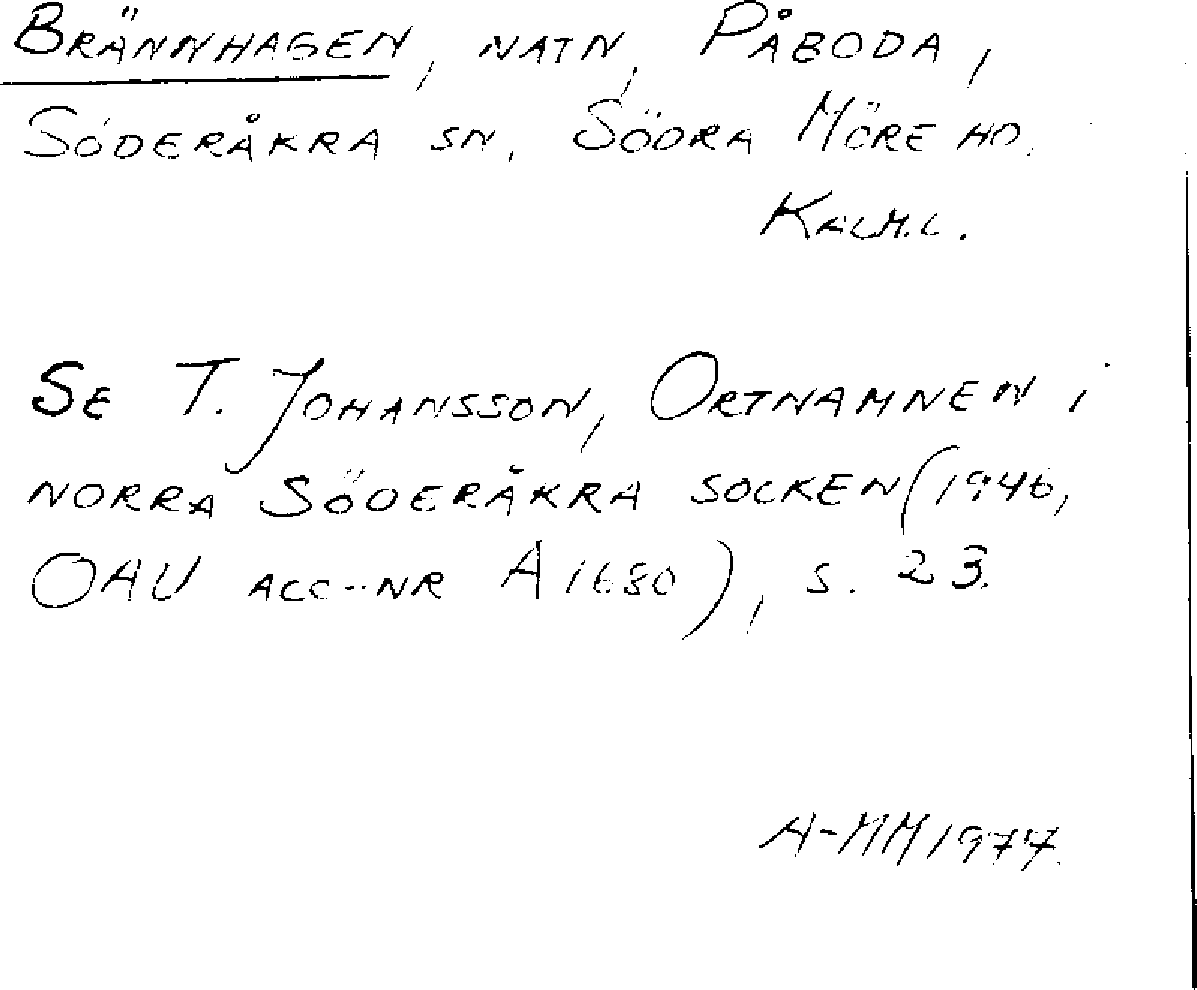 BRÄNNHAGEN, NATN, PÅBODA,
SÖDERÅKRA SN, SÖDRA MÖRE HD.
KALM.L.
SE T. JOHANSSON, ORTNAMNEN i
NORRA SÖDERÅKRA SOCKEN (1946,
OAU ACC-NR A1680), S. 23.
A-MM1974.